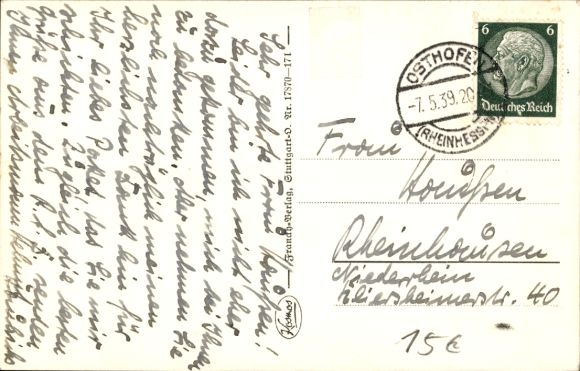 Sehr geehrte Frau Houßen!
Leider bin ich nicht eher
dazu gekommen, mich bei Ihnen
zu bedanken, aber nehmen Sie
noch nachträglich meinen
herzlichsten Dank ein für
Ihr liebes Paket das Sie mir
schickten. Zugleich die besten
Grüße aus dem R.A.D. sendet
Ihnen
Franckh-Verlag, Stuttgart-O. Nr. 17870—171
Kosmos
6 6
Deutsches Reich
OSTHOFEN
-7.5.39.20
(RHEINHESSEN)
Frau
Houßen
Rheinhausen
Niederrhein
40
15€